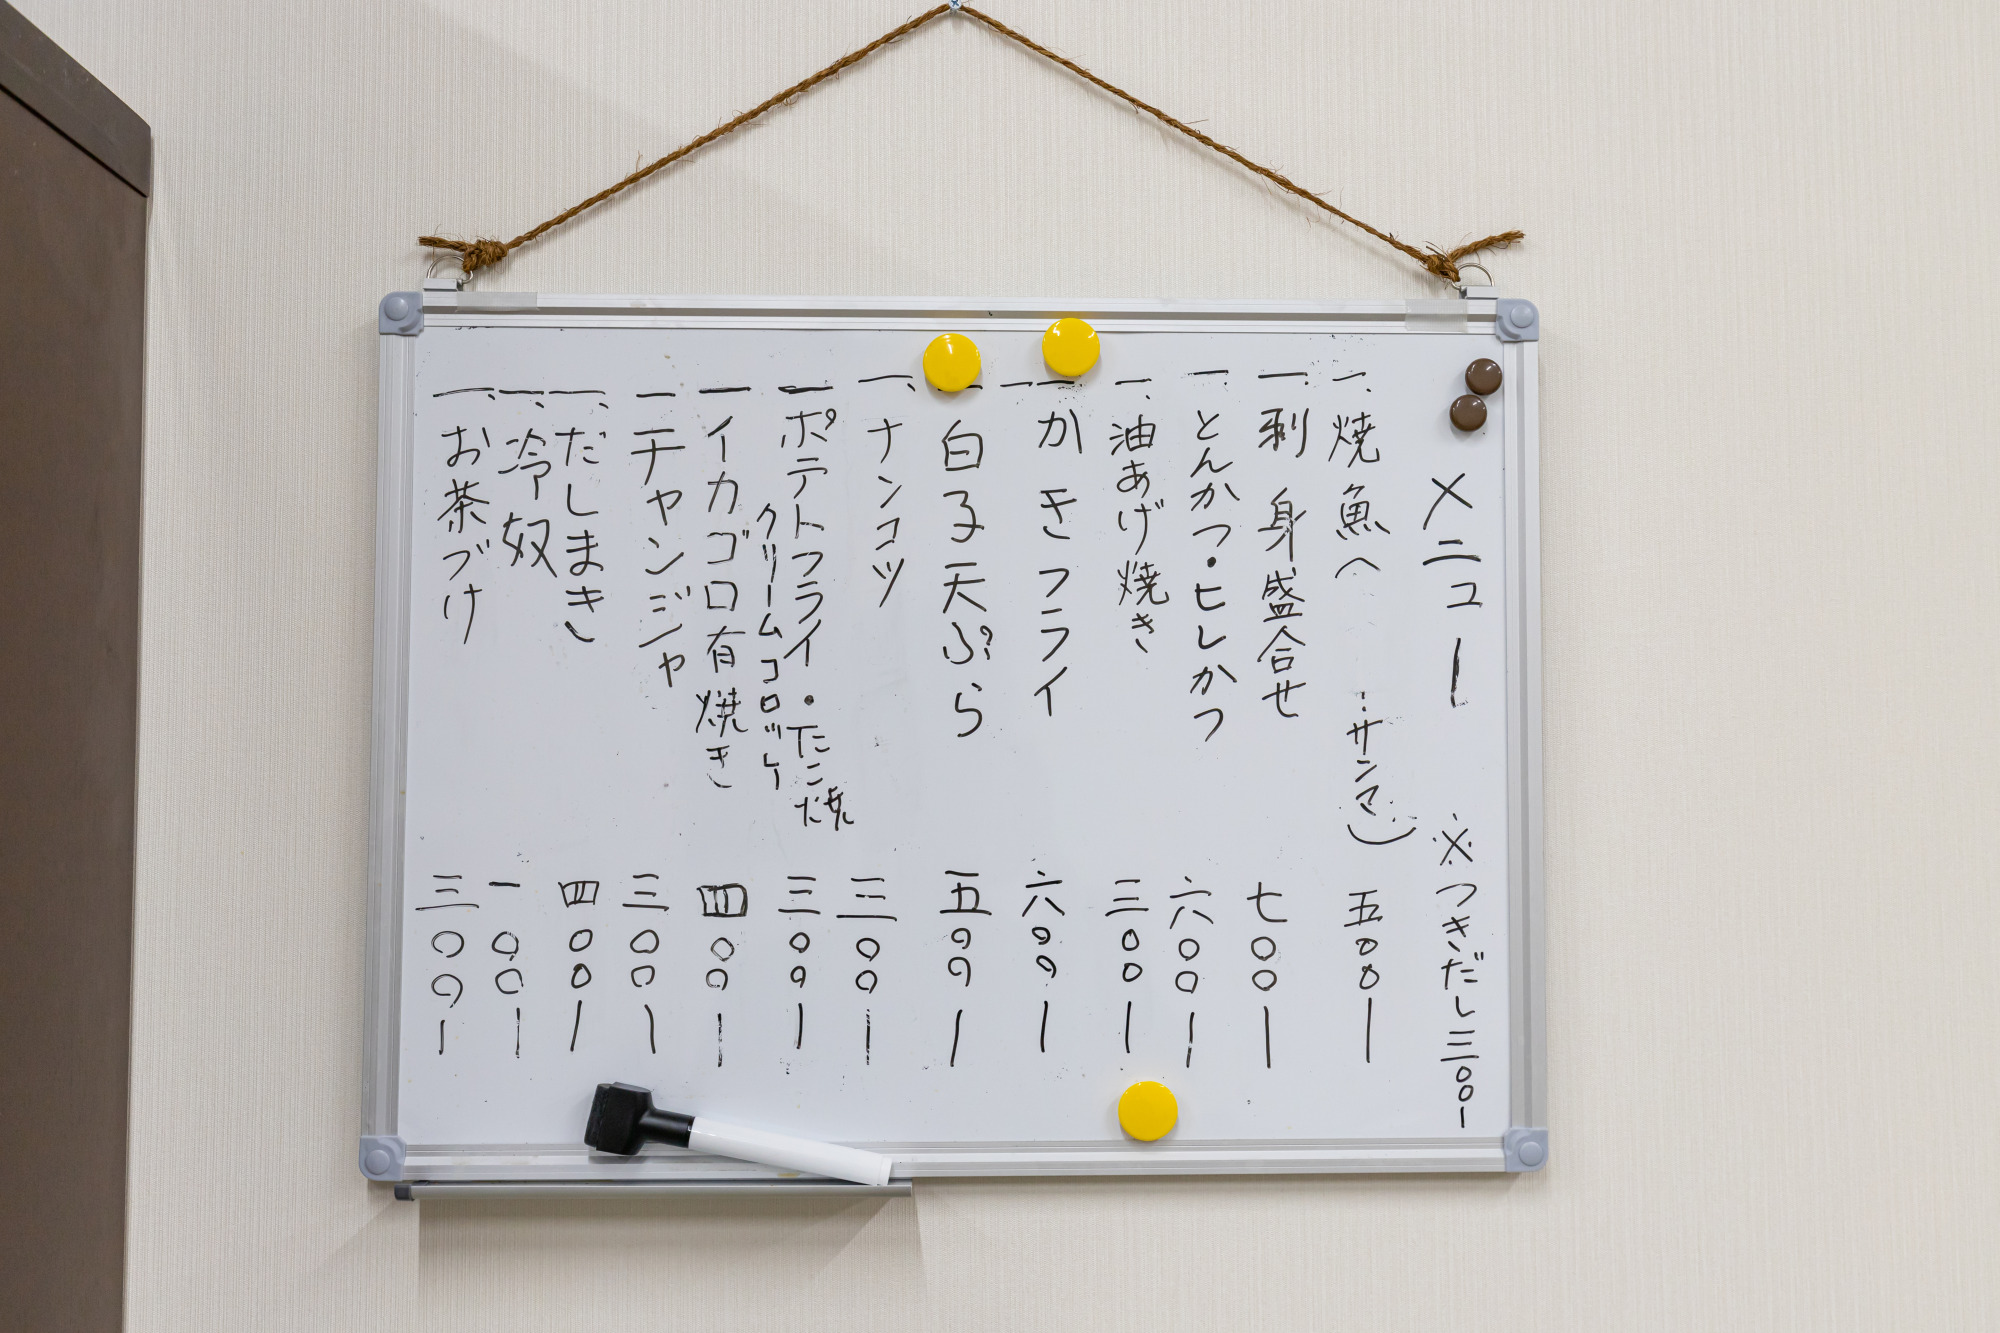 メニュー ※つきだし三〇〇ー
一、焼魚へ …サンマ） 五〇〇ー
一、刺身盛合せ 七〇〇ー
一、とんかつ・ヒレかつ 六〇〇ー
一、油あげ焼き 三〇〇ー
一、かきフライ 六〇〇ー
一、白子天ぷら 五〇〇ー
一、ナンコツ 三〇〇ー
一、ポテトフライ・たこ焼 三〇〇ー
クリームコロッケ
一、イカゴロ有焼き 四〇〇ー
一、チャンジャ 三〇〇ー
一、だしまき 四〇〇ー
一、冷奴 一〇〇ー
一、お茶づけ 三〇〇ー